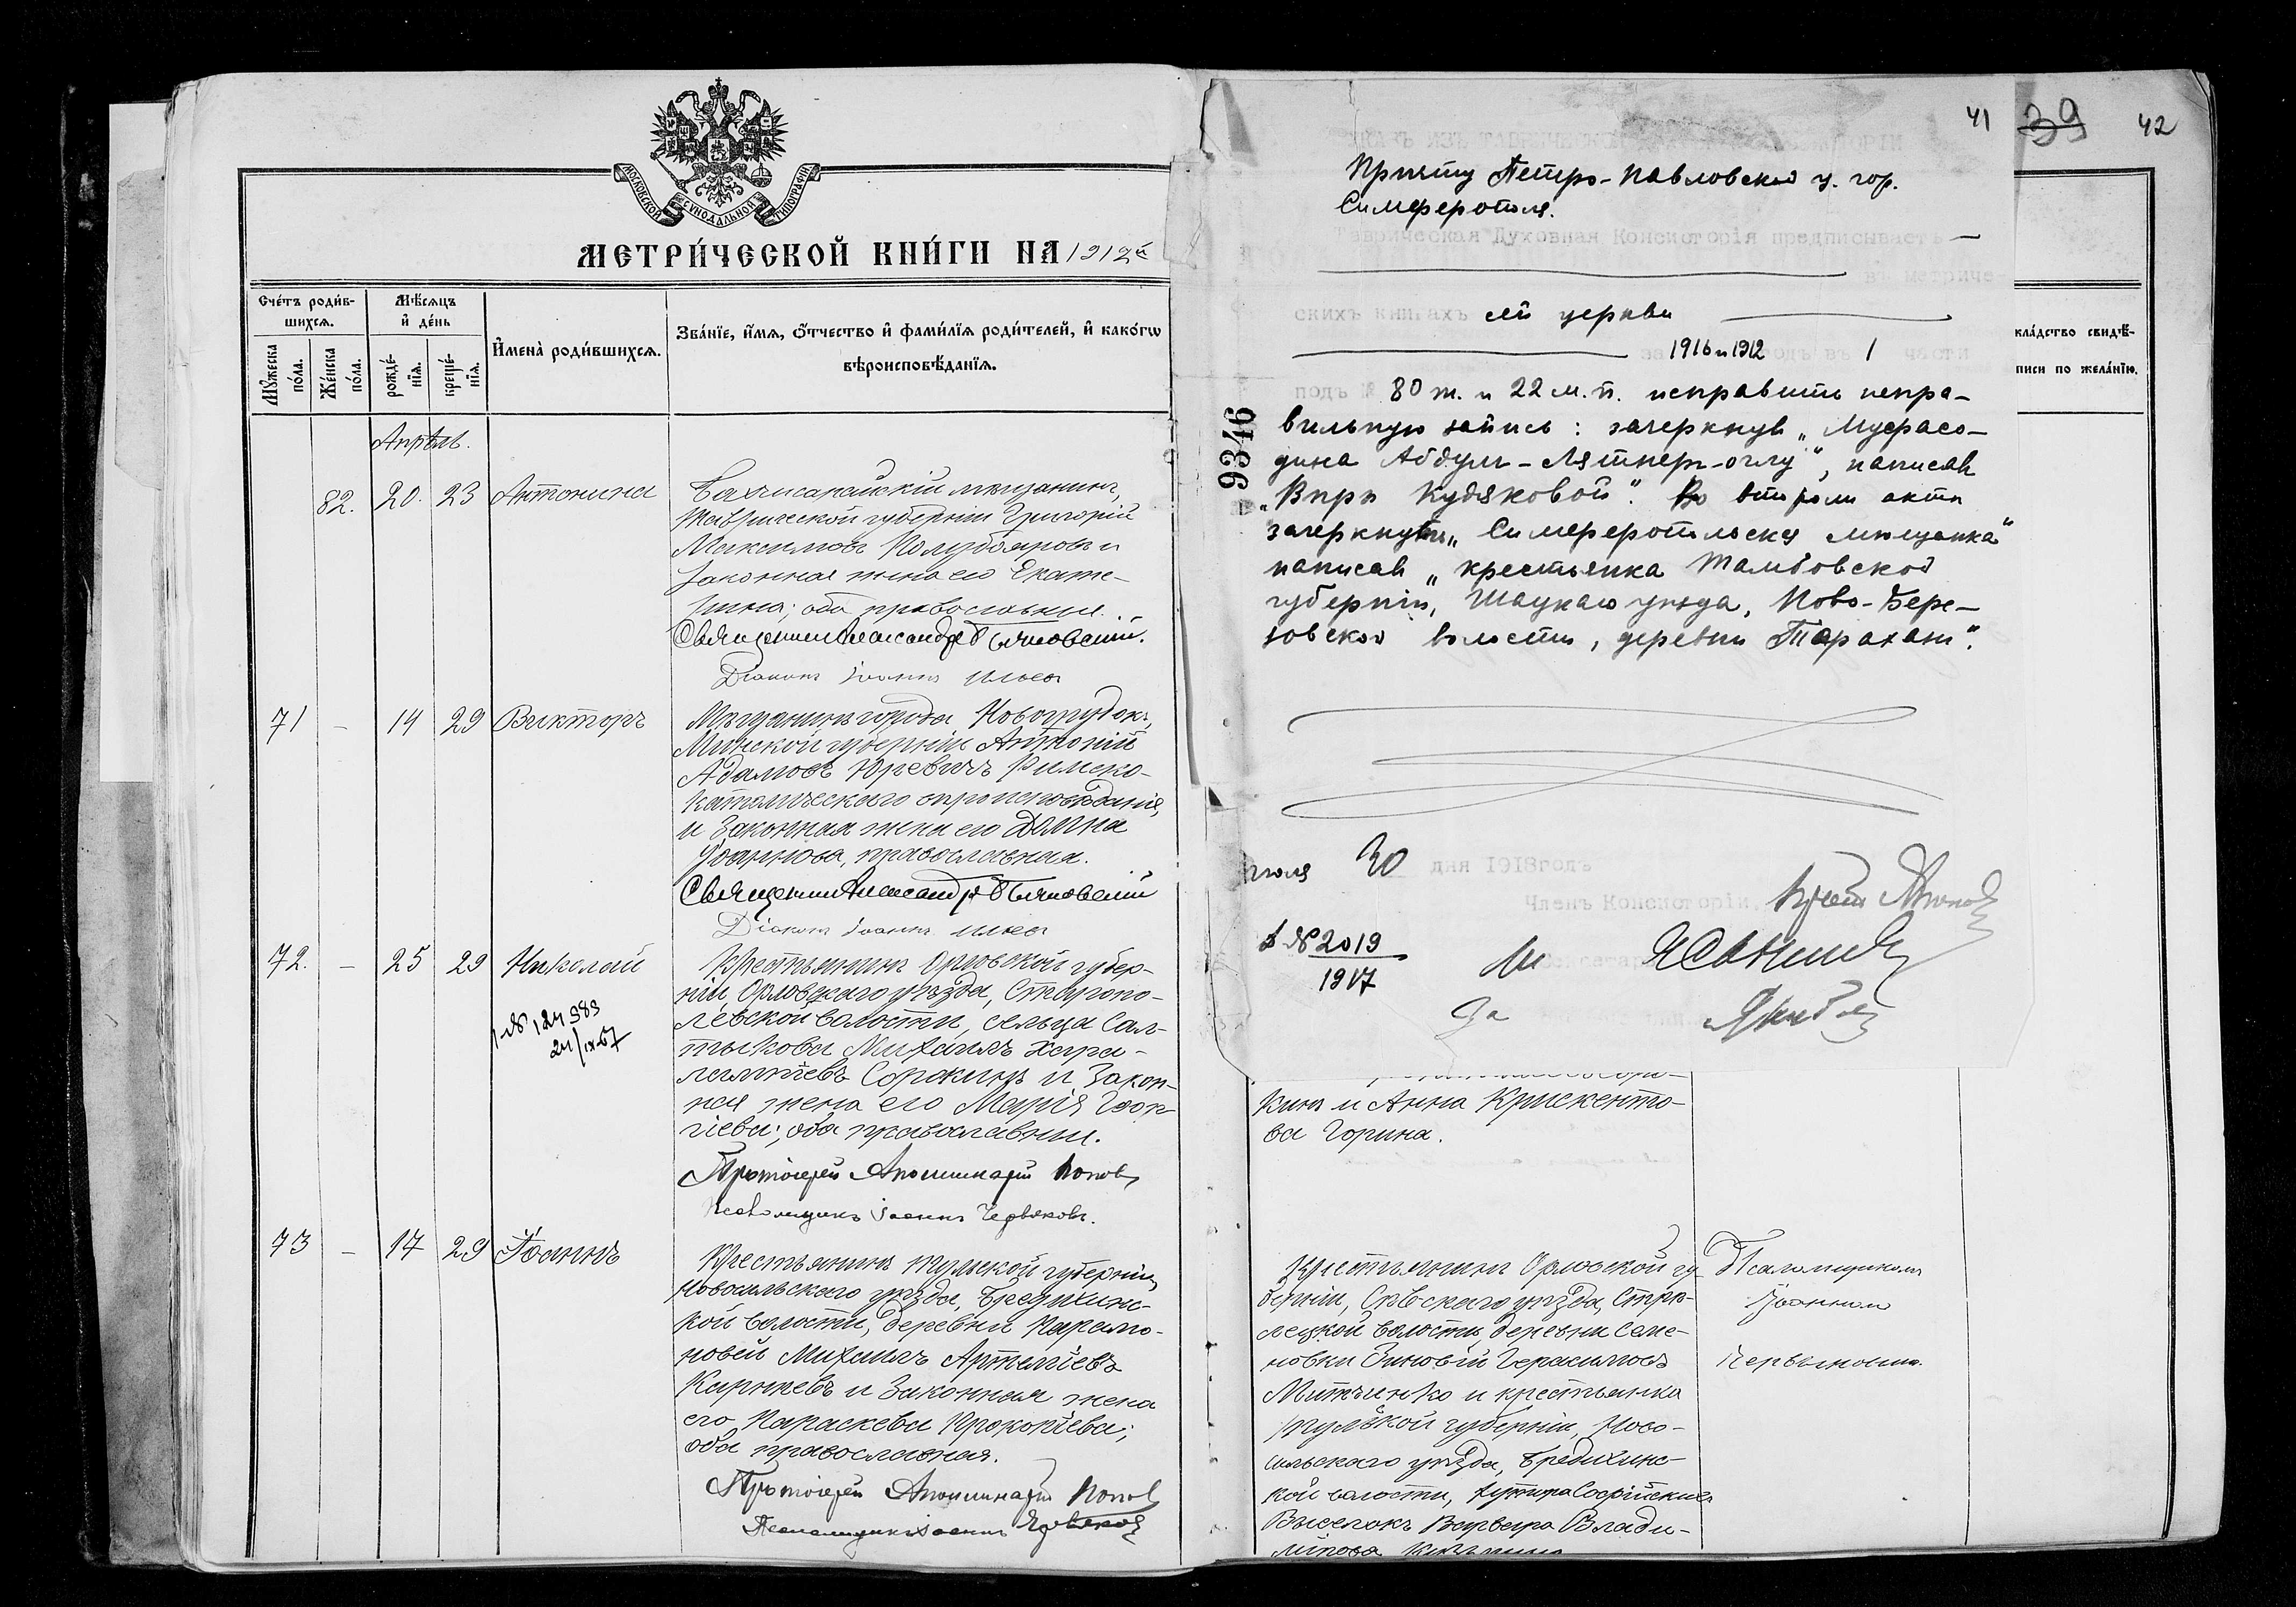 МОСКОВСКОЙ СУНОДАЛЬНОЙ ТИПОГРАФІИ
МЕТРИ́ЧЕСКОЙ КНИ́ГИ НА 1912й
Сче́тъ роди́в-
шихся.
Мѣ́сяцъ
и҆ де́нь
И҆мена̀ роди́вшихся.
Зва́нїе, и҆́мя, ѻ҆́тчество и҆ фами́лїя роди́телей, и҆ како́гѡ
вѣроисповѣ́данїя.
Мꙋ́жеска
по́ла.
Же́нска
по́ла.
рожде́-
нїя.
креще́-
нїя.
Апрѣль.
82. 20. 23 Антонина
Бахчисарайскій мѣщанинъ,
Таврической губерніи Григорій
Максимовъ Полубояровъ и
законная жена его Екате-
рина; оба православные.
Священникъ Александръ
Діаконъ Іоаннъ
71 – 14 29 Викторъ
Мѣщанинъ города Новогрудокъ,
Минской губерніи Антоній
Адамовъ Юревичъ Римско-
католическаго вѣроисповѣданія,
и законная жена его Домна
Іоаннова, православная.
Священникъ Александръ
Діаконъ Іоаннъ
72. – 25 29 Николай
№ 124983
24/IX-67
Крестьянинъ Орловской губер-
ніи, Орловскаго уѣзда, Старопо-
левской волости, сельца Сал-
тыкова Михаилъ Хара-
лампіевъ Сорокинъ и закон-
ная жена его Марія Геор-
гіева; оба православные.
Протоіерей Аполлинарій Поповъ
Псаломщикъ Іоаннъ Червяковъ.
73 – 17 29 Іоаннъ
Крестьянинъ Тульской губерніи,
Новосильскаго уѣзда, Бредихинс-
кой волости, деревни Парамо-
новой Михаилъ Артеміевъ
Карнѣевъ и законная жена
его Параскева Прокопіева;
оба православныя.
Протоіерей Аполлинарій Поповъ
Псаломщикъ Іоаннъ Червяковъ
41 39 42
Причту Петро-Павловской ц. гор.
Симферополя.
Таврическая Духовная Консисторія предписываетъ —
въ метриче-
скихъ книгахъ сей церкви
за 1916 и 1912 годъ въ 1 части
подъ № 80 ж. и 22 м. п. исправить непра-
вильную запись: зачеркнувъ „Муфасо-
дина Абдул-Лятнер-оглу", написавъ
„Вѣры Кудяковой". Во второмъ актѣ
зачеркнувъ „Симферопольская мѣщанка"
написавъ „крестьянка Тамбовской
губерніи, Шацкаго уѣзда, Ново-Бере-
зовской волости, деревни Тарахани".
9346
іюля 30 дня 1918 годъ
Членъ Консисторіи, Прот. А. Поповъ
№ 2019
1917
За
кла́дство свидѣ́-
писи по жела́нїю.
кинъ и Анна Крискенто-
ва Горина.
Крестьянинъ Орловской гу-
берніи, Сѣвскаго уѣзда, Стрѣ-
лецкой волости, деревни Семе-
новки Зиновій Герасимовъ
Митченко и крестьянка
Тульской губерніи, Ново-
сильскаго уѣзда, Бредихинс-
кой волости, хутора Софійскихъ
Выселокъ Варвара Влади-
мірова
Псаломщикомъ
Іоанномъ
Червяковымъ.